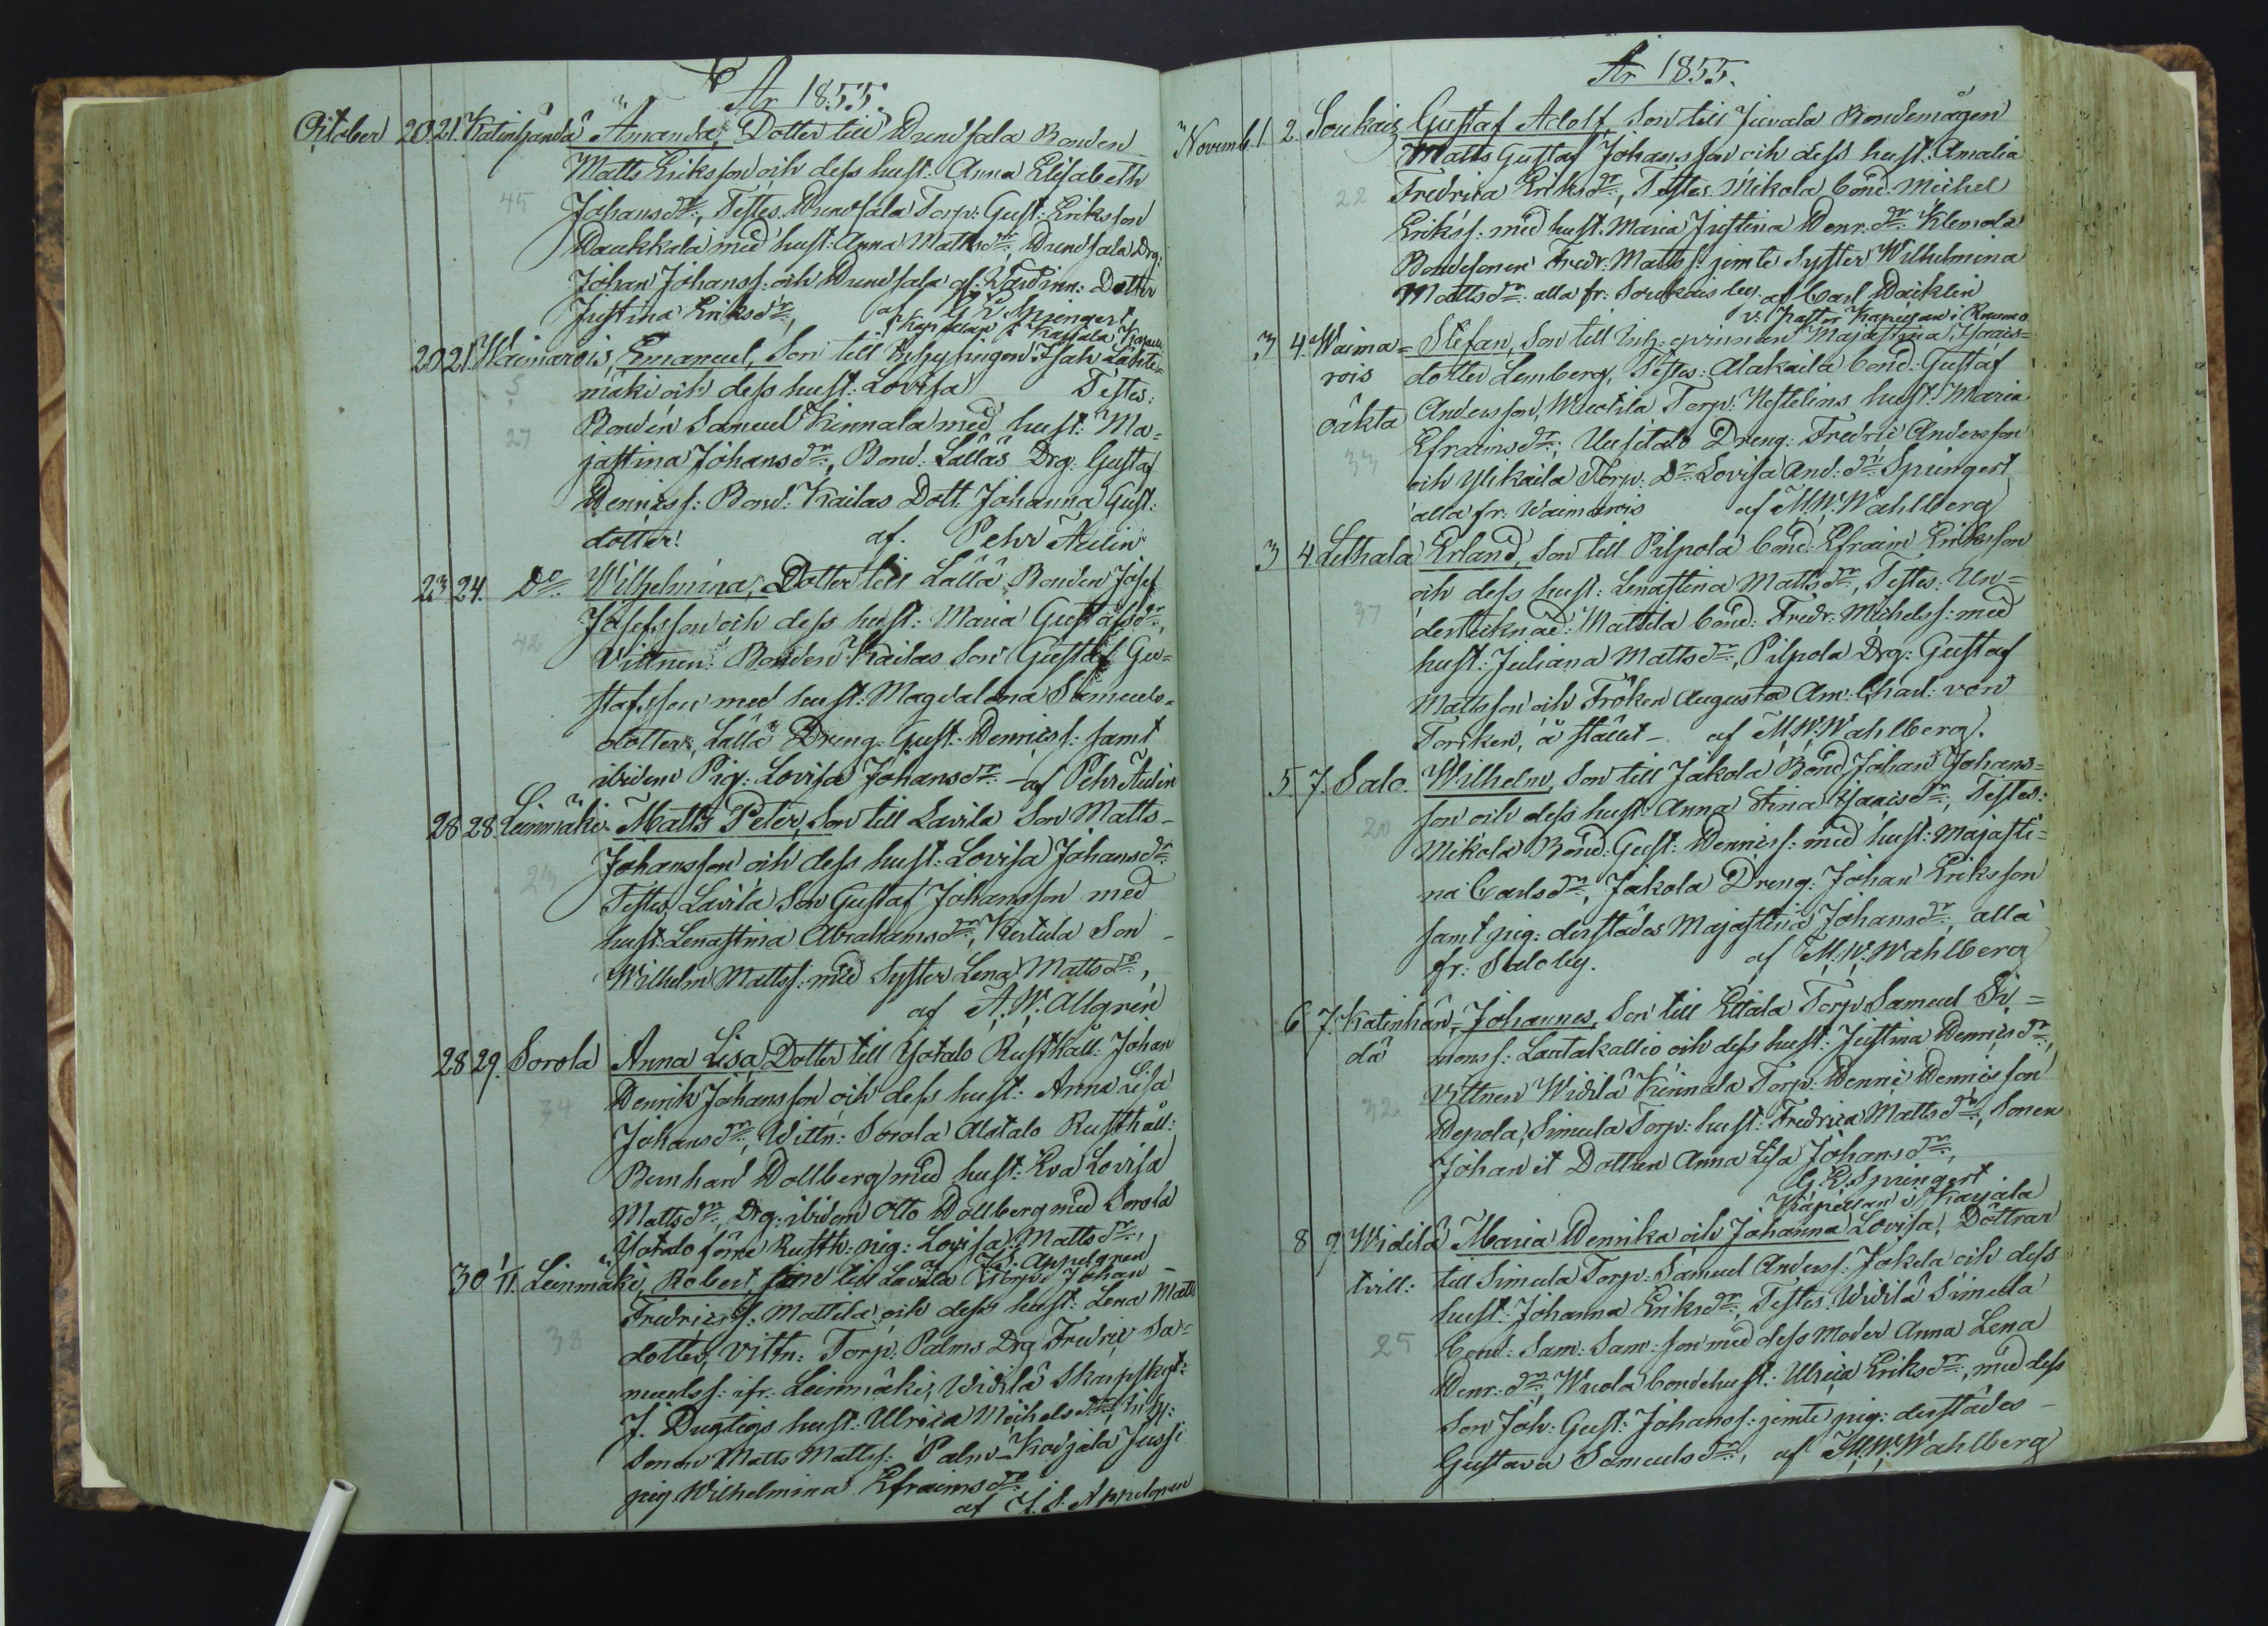 År 1855.
October 20. 21. Katinhändä Amanda, Dotter till Hundsala Bonden
Matts Eriksson och dess hust: Anna Elisabeth
45 Johansdr:, Testes. Hundsala Torp: Gust: Eriksson
Haukkala med hust: Anna Mattsdr:, Hundsala Drg:
Johan Johanss: och Hundsala Dotter
Justina Eriksdr:, af G E Springert
Kapellan i Karjala Kapell
20 21. Waimarois, Emanuel, Son till Inhysingen Isak Lähte=
5 mäki och dess hust: Lovisa Testes:
27 Bonden Samuel Kinnala med hust: Ma=
jastina Johansdr:, Bond: Lallas Drg: Gustaf
Henricss: Bond: Kailas Dott. Johanna Gust:
dotter. af. Pehr Aulin
23 24. Do. Wilhelmina, Dotter till Lallâ Bonden Josef
Josefsson och dess hust: Maria Gustafsdr:,
42 Vittnen: Bonden Kailas Son Gustaf Gu=
stafsson med hust: Magdalena Samuels=
dotter, Lallâ Dreng: Gust: Henricss: samt
ibidem Pig: Lovisa Johansdr: – af Pehr Aulin
28 28. Leinmäki Matts Peter, Son till Lavila Son Matts
Johansson och dess hust: Lovisa Johansdr:
23 Testes, Lavila Son Gustaf Johansson med
hust: Lenastina Abrahamsdr:, Kustula Son
Wilhelm Mattss: med Syster Lena Mattsdr:,
af A. W. Allgrén
28 29. Sorola Anna Lisa, Dotter till Yötalo Rusthåll: Johan
Henrik Johansson och dess hust: Anna Lisa
34 Johansdr:, Wittn: Sorola Alotalo Rusthåll:
Bernhard Hollberg med hust: Eva Lovisa
Mattsdr:, Drg: ibidem Otto Hollberg med Sorola
Yötalo förre Rusth: pig: Lovisa Mattsdr:,
af J. S. Appelgren
30 1/11. Leinmäki, Robert, son till Lavila Torp: Johan
Fredricss: Mattila och dess hust: Lena Matts
38 dotter, Vittn: Torp: Palms Drg Fredric Sa=
muelss: ifr. Leinmäki, Widilä
J. Dugtigs hust: Ulrica Michelsdr:, inhy:
Sonen Matts Mattss: Palm – Karjala Jussi
pig Wilhelmina Efraimsdr:
af J. S. Appelgren
År 1855.
Novemb. 1. 2. Soukais Gustaf Adolf, Son till Juvala Bondemågen
Matts Gustaf Johansson och dess hust: Amalia
22 Fredrica Eriksdr:, Testes. Mikola bond: Michel
Erikss: med hust: Maria Justina Henr:dr: Klemola
Bondesonen Fredr: Mattss: jemte Syster Wilhelmina
Mattsdr: alla fr: Soukais by. af Carl Häiklin
v: Pastor Kapellan i Raumo
3 4. Waima= Stefan, Son till Inh: qvinnan Majastina Isaacs=
rois dotter Lemberg, Testes: Alakaila bond: Gustaf
oäkta Andersson, Wuotila Torp: Nestelins hust: Maria
33 Efraimsdr:, Uusitalo Dreng: Fredric Andersson
och Ylikaila Torp: Dr: Lovisa And:dr: Springert
alla fr: Waimarois af M. W. Wahlberg
3 4. Lethala Erland, Son till Pilpola bond: Efraim Eriksson
och dess hust: Lenastina Mattsdr:, Testes: Un=
37 dertecknad: Mattila bond: Fredr: Michelss: med
hust: Juliana Mattsdr:, Pilpola Drg: Gustaf
Mattsson och Fröken Augusta Am: Charl: von
Torcken, å stället – af M. W. Wahlberg.
5. 7. Salo. Wilhelm, Son till Jakola Bond Johan Johans=
son och dess hust: Anna Stina Isaacsdr:, Testes:
20 Mikola Bond: Gust: Henricss: med hust: Majasti=
na Carlsdr:, Jakola Dreng: Johan Eriksson
samt pig: derstädes Majastina Johansdr:, alla
fr: Salo by. af M. W. Wahlberg
6 7. Katinhän= Johannes, Son till Ettala Torp: Samuel Si=
dä monss: Lautakallio och dess hust: Justina Henricsdr:,
32 Vittnen Widilä Kinnala Torp: Henric Henricsson
Hepola, Simula Torp: hust: Fredrica Mattsdr:, Sonen
Johan et Dottren Anna Lisa Johansdr:,
G. E. Springert
Kapellan i Karjala
8 9. Widilä Maria Henrika och Johanna Lovisa, Döttrar
tvill: till Simula Torp: Samuel Anderss: Jokela och dess
hust: Johanna Eriksdr:, Testes. Widilä Simula
25 bond: Sam: Sam:son med dess moder Anna Lena
Henr:dr:, Wuola bondehust: Ulrica Eriksdr:, med dess
Son Joh: Gust: Johanss: jemte pig: derstädes –
Gustava Samuelsdr:, af M. W. Wahlberg